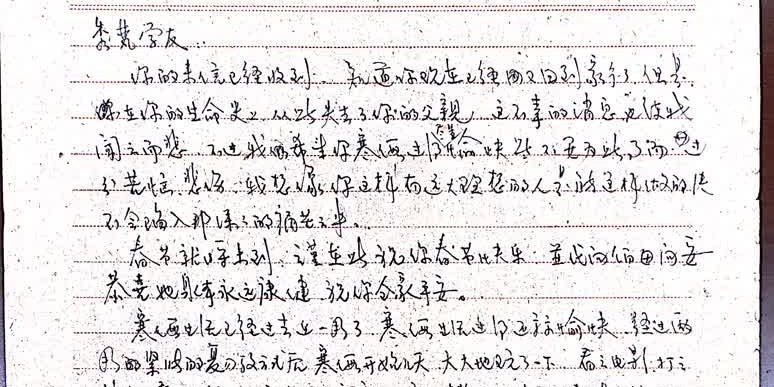 学友：
你的来信已经收到，知道你现在已经回到家乡了，但是
在你的生命史上从此失去了你的父親，这不幸的消息也使我
闻之而悲，不过我希望你寒假过得愉快些，不要为此了而过
分苦恼，悲伤，我想像你这样有远大理想的人是能这样做的，
不会陷入那深深的痛苦之中。
春节就要来到，谨在此祝你春节快乐，并代向伯母问安
恭祝她身体永远康健，祝你全家平安。
寒假生活已经过去近一了，寒假生活过得还较愉快，经过两
的紧张的复习放后，寒假开始几天，大大地玩了一下，看电影，打